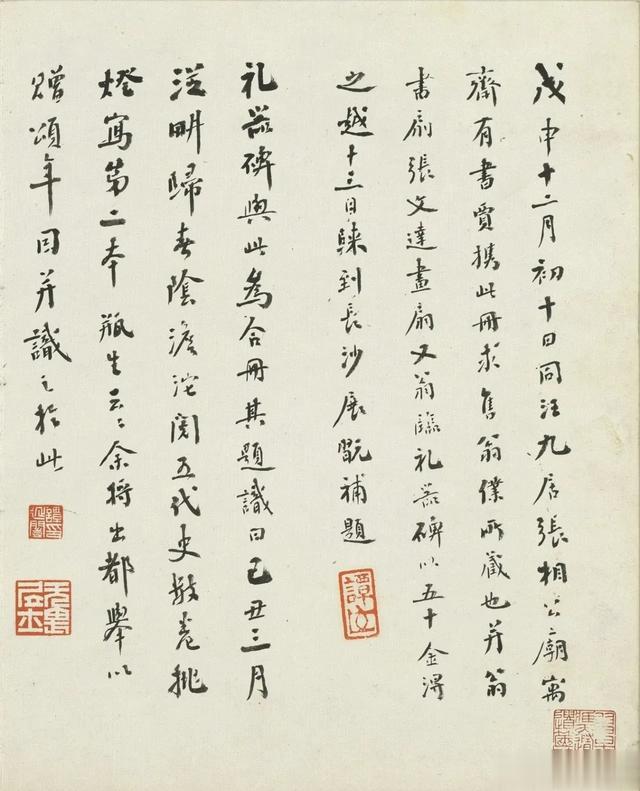 戊申十二月初十日同汪九居張相公廟寓
齋有書賈携此冊求售翁僕所藏也并翁
書扇張文達畫扇又翁臨礼器碑以五十金得
之越十三日歸到長沙展翫補題
譚
礼器碑與此為合冊其題識曰己丑三月
從畊歸春陰澹沱閱五代史數卷挑
燈寫第二本瓶生云云余將出都舉以
贈頌年同并識之於此